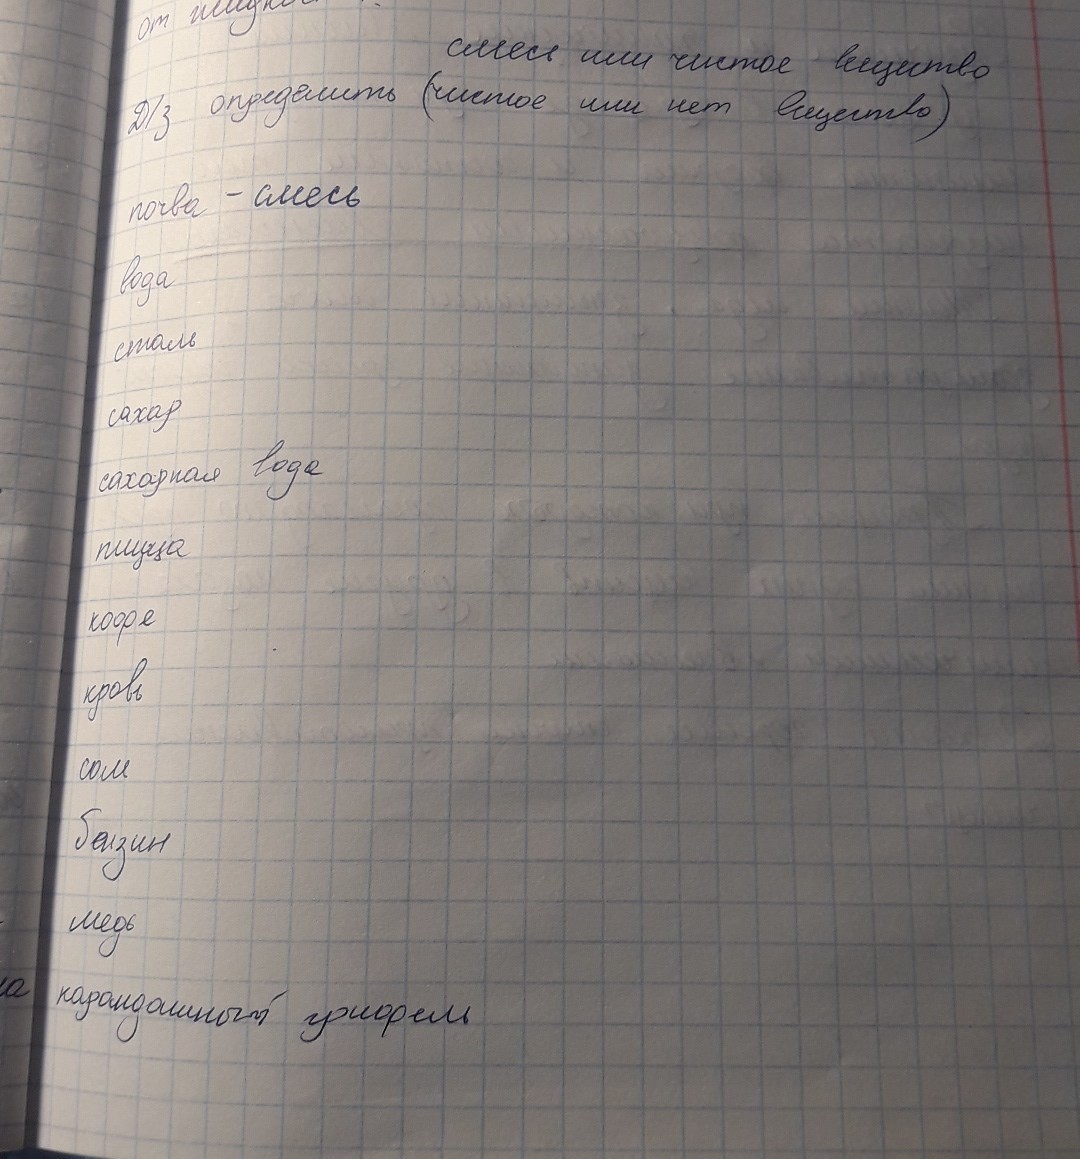 от
смесь или чистое вещество
Д/з определить (чистое или нет вещество)
почва - смесь
вода
сталь
сахар
сахарная вода
пицца
кофе
кровь
бензин
медь
карандашный грифель